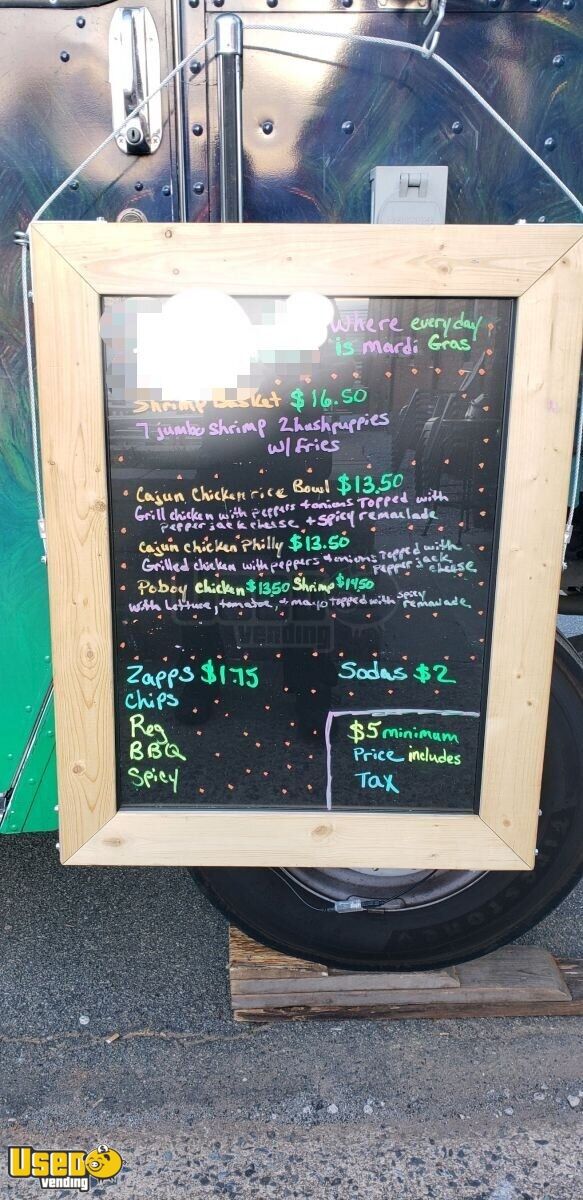 where everyday
is mardi Gras
Shrimp Basket $16.50
7 jumbo shrimp 2 hushpuppies
w/ Fries
Cajun Chicken rice Bowl $13.50
Grill chicken with peppers + onions Topped with
pepper jack cheese + spicy remaulade
Cajun chicken Philly $13.50
Grilled chicken with peppers + onions topped with
pepper jack
cheese
Poboy chicken $13.50 Shrimp $14.50
with Lettuce, tomatoe, + mayo Topped with spicy remaulade
Zapps $1.75
Chips
Reg
BBQ
Spicy
Sodas $2
$5 minimum
Price includes
Tax
Firestone
Used
vending